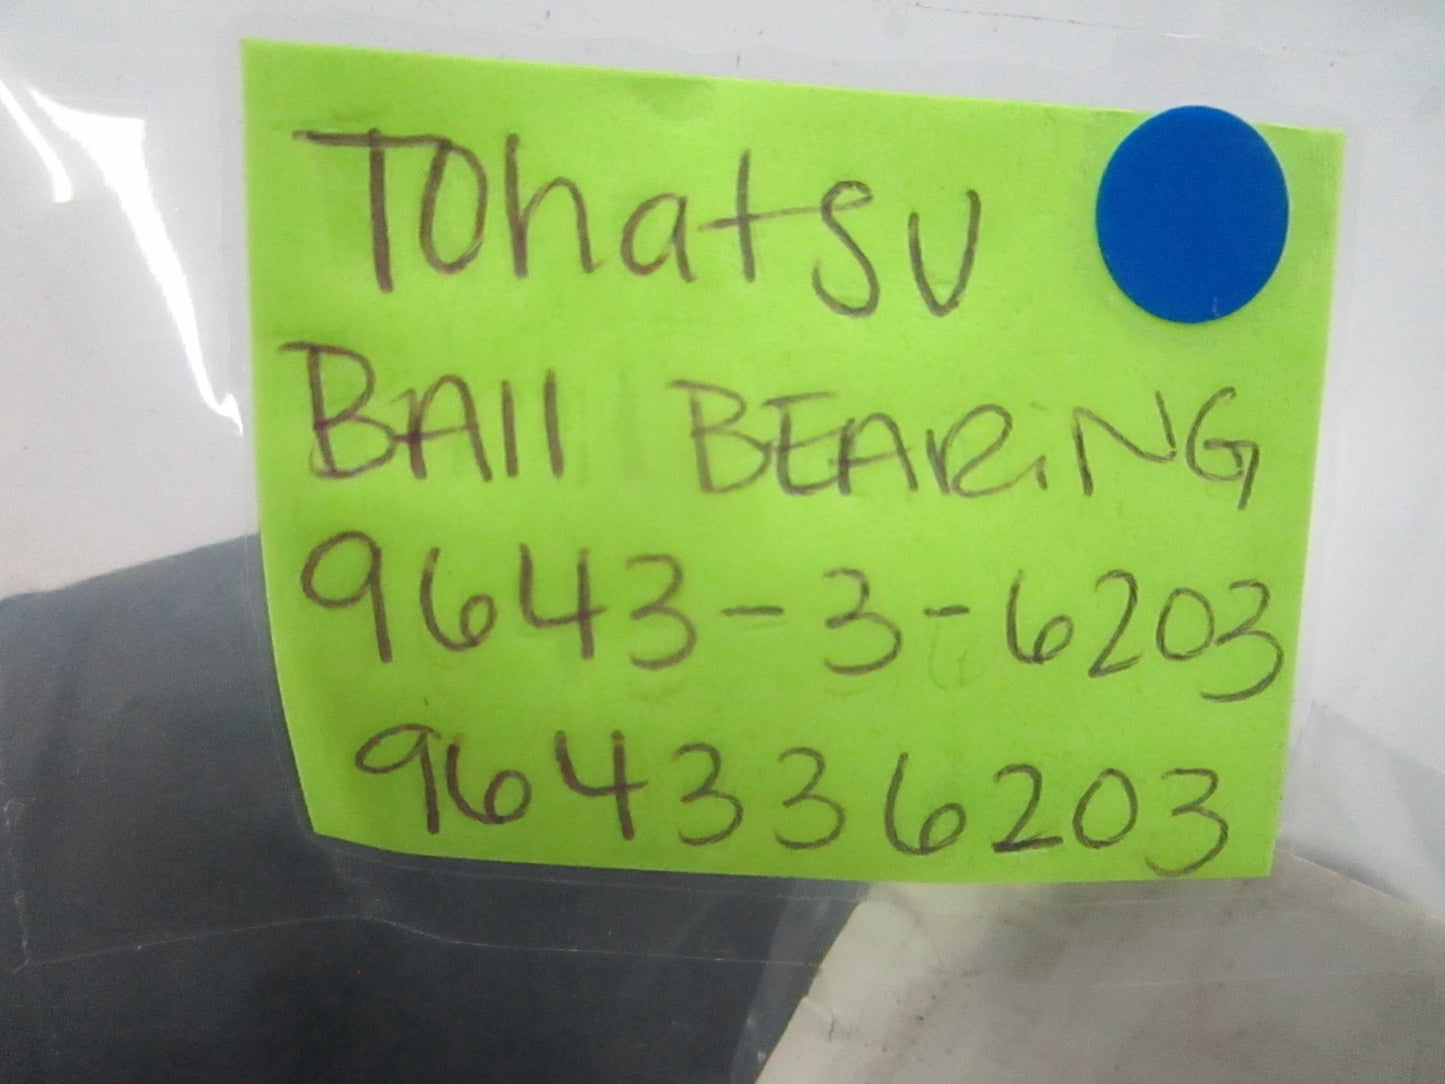 Tohatsu
BAll BEARiNG
9643-3-6203
964336203